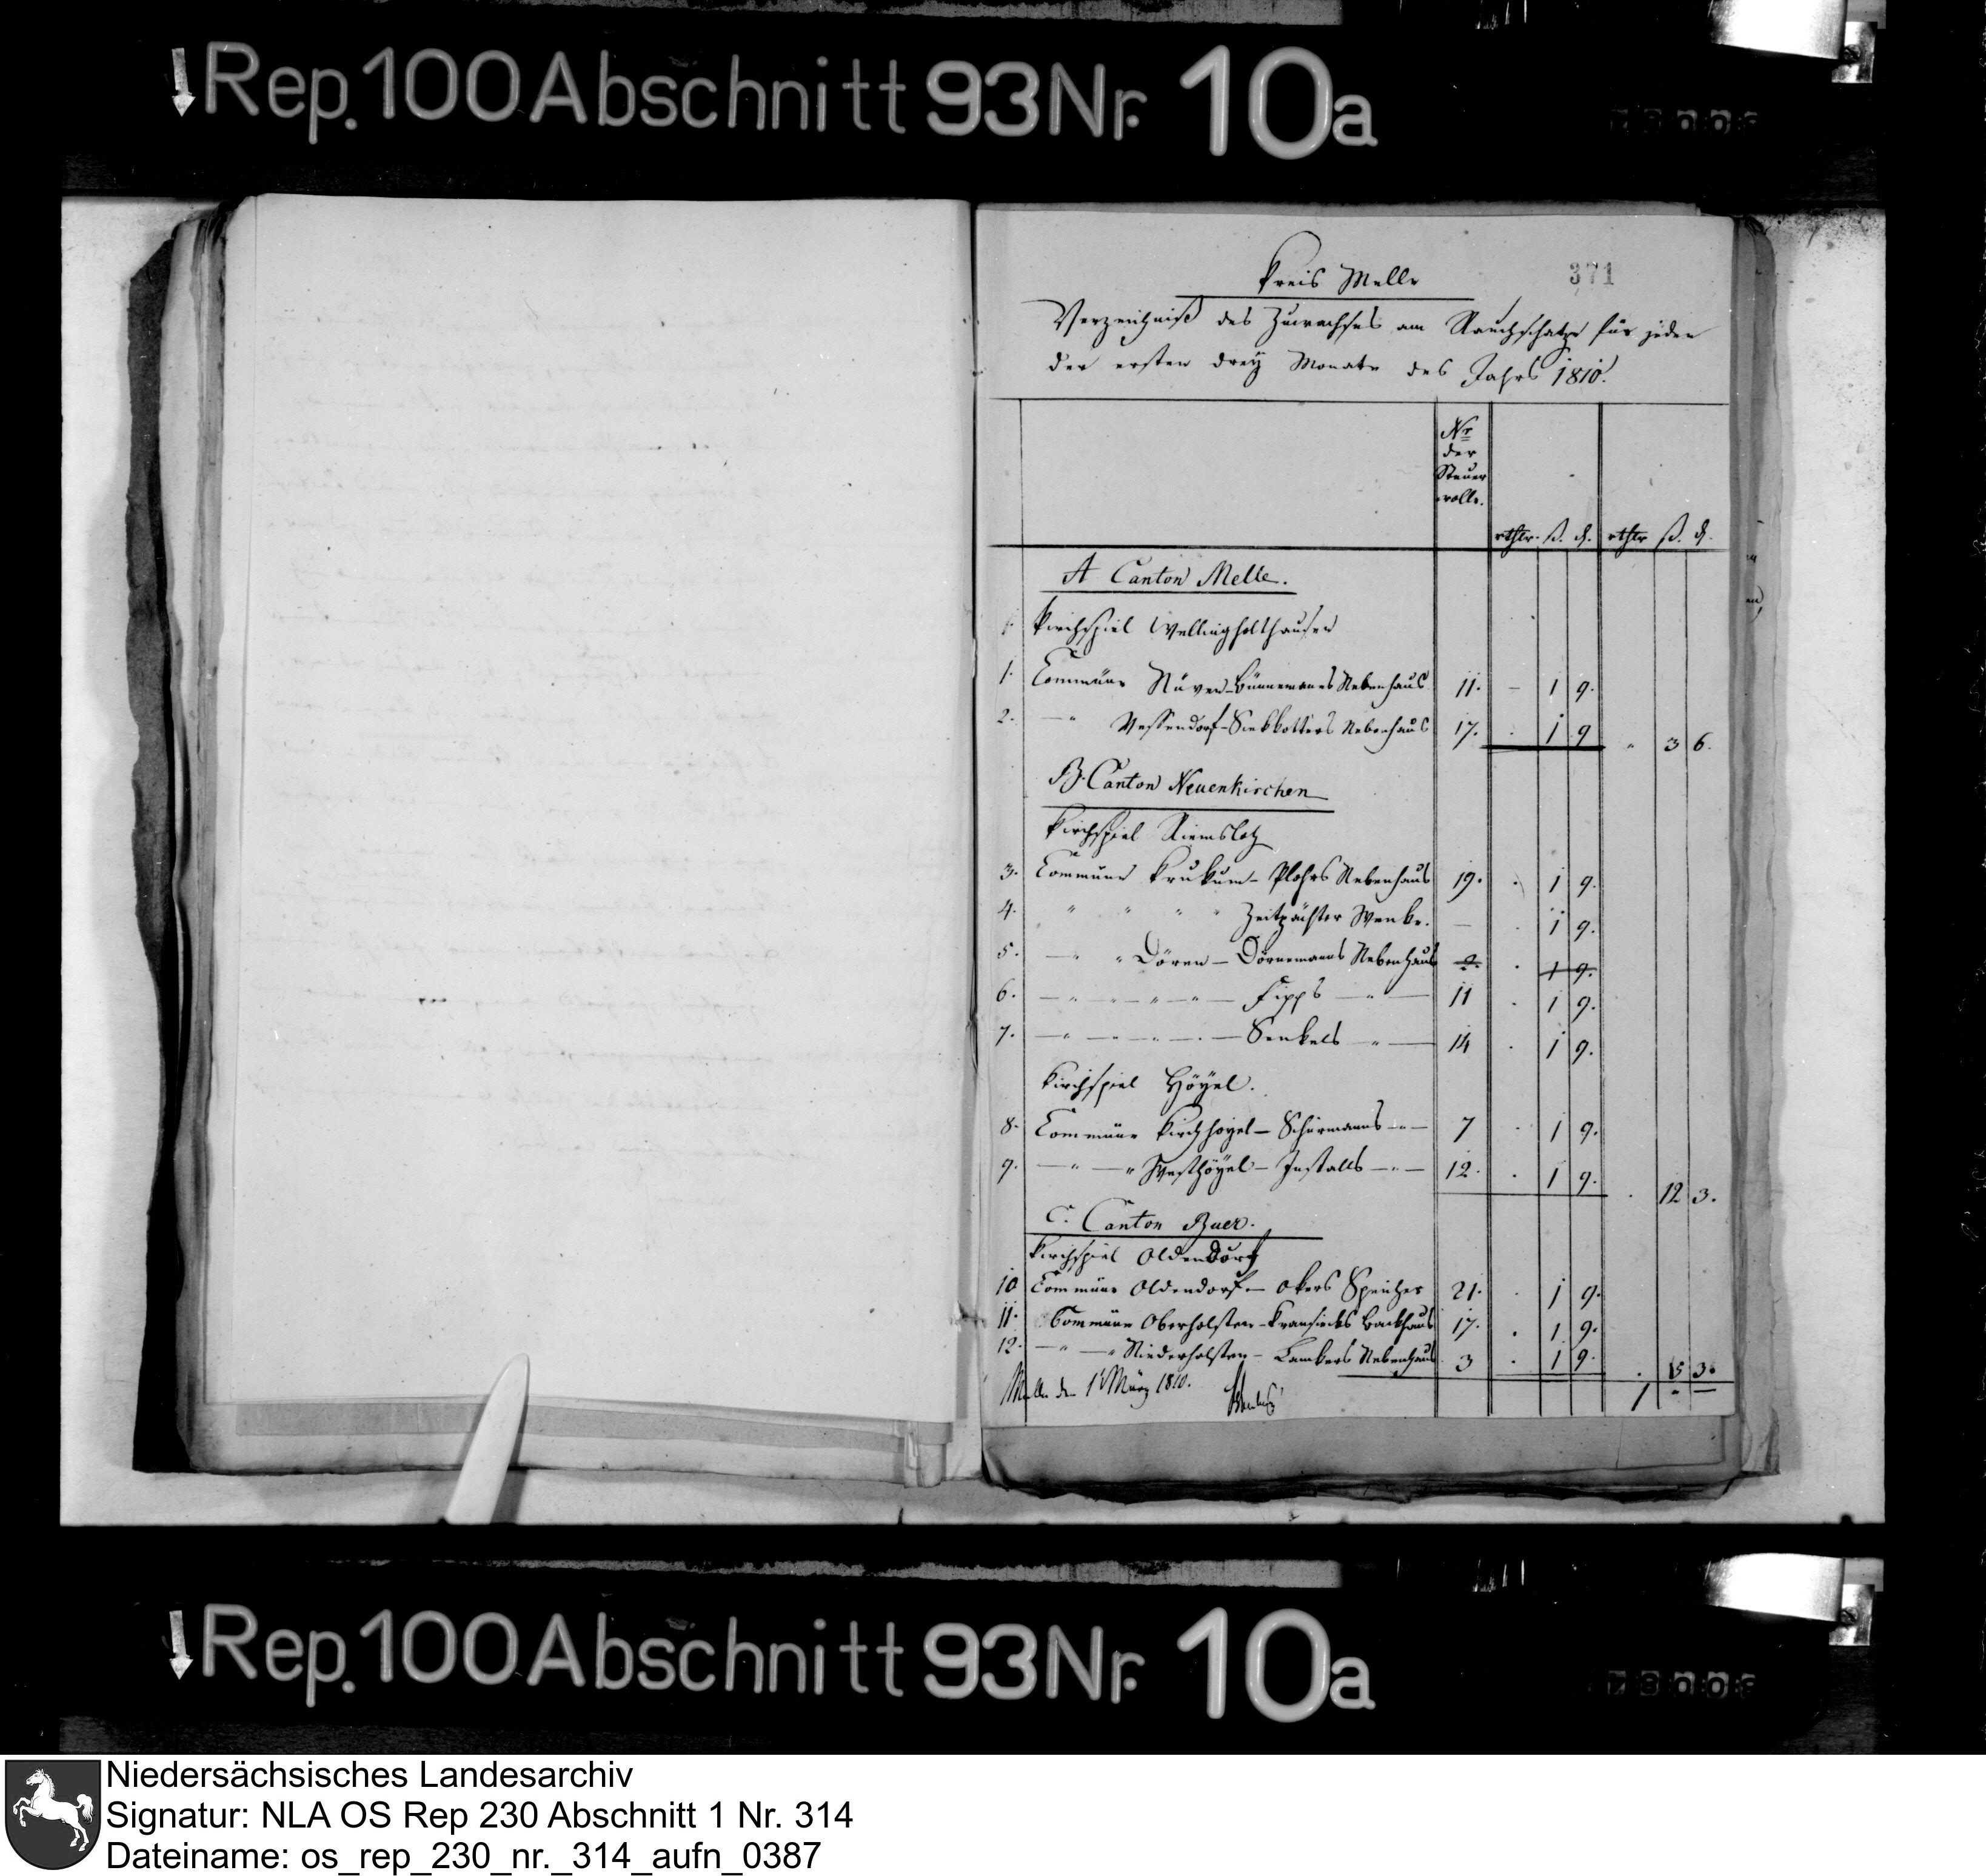 Rep. 100 Abschnitt 93 Nr. 10a
Kreis Melle
371
Verzeichniß des Zuwachses am Rauchschatze für jeden
der ersten drey Monate des Jahrs 1810.
Nr
der
Steuer
rolle.
rthlr. ß. d. rthlr ß. d.
A Canton Melle.
Kirchspiel Wellingholthausen
1. Commüne Nüven-Bünnemanns Nebenhaus 11. - 1 9.
2. - " Vessendorf-Siekkotters Nebenhaus 17. . 1 9 " 3 6.
B. Canton Neuenkirchen
Kirchspiel Riemsloh
3. Commune Krukum - Plohrs Nebenhaus 19. . 1 9.
4. " " " " Zeitpächter Wenke. - . 1 9.
5. - " " Dören - Dörnemanns Nebenhaus 2. . 1 9.
6. - " - " - " - Fipps - " - 11 . 1 9.
7. - " - - " - - Senkels - " - 14 . 1 9.
Kirchspiel Höyel.
8. Commüne Kirchhoyel - Schürmanns - " - 7 . 1 9.
9. - " - " Westhöyel - Installs - " - 12. . 1 9. . 12 3.
C. Canton Buer.
Kirchspiel Oldendorf
10 Commüne Oldendorf - Okers Speicher 21. . 1 9.
11. Commüne Oberholsten - Kransieks Backhaus 17. . 1 9.
12. - " - " Niederholsten - Lambers Nebenhaus 3 . 1 9. . 5 3.
Melle den 1t März 1810.
1 - -
Rep. 100 Abschnitt 93 Nr. 10a
Niedersächsisches Landesarchiv
Signatur: NLA OS Rep 230 Abschnitt 1 Nr. 314
Dateiname: os_rep_230_nr._314_aufn_0387